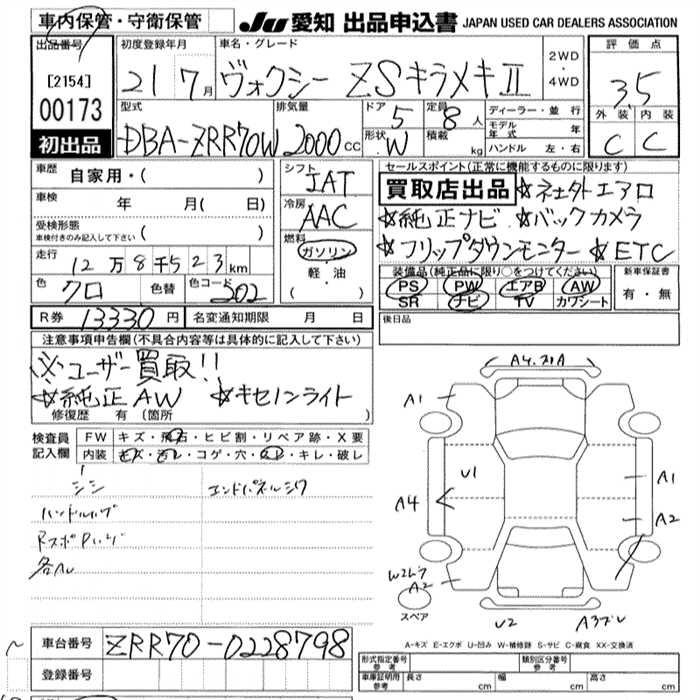 車内保管・守衛保管 JU 愛知 出品申込書 JAPAN USED CAR DEALERS ASSOCIATION
出品番号 初度登録年月 車名・グレード 2WD・4WD 評価点
[2154] 21 7月 ヴォクシー ZSキラメキⅡ 3.5
00173 型式 排気量 ドア 5 定員 8人 ディーラー・並行 外装 内装
モデル年式 年
初出品 DBA-ZRR70W 2000cc 形状 W 積載 kg ハンドル 左・右 C C
車歴 自家用・( ) シフト IAT セールスポイント(正常に機能するものに限ります)
車検 年 月( 日) 冷房 AAC 買取店出品 ☆ネオクトエアロ
受検形態 車検付きのみ記入して下さい ( ) ☆純正ナビ ☆バックカメラ
燃料 ガソリン 軽・油 ・( ) ☆フリップダウンモニター ☆ETC
走行 12万8千523km 装備品(純正品に限り○をつけてください) 新車保証書
色 クロ 色替 色コード 202 PS PW エアB AW 有・無
SR ナビ TV カワシート
R券 13330円 名変通知期限 月 日 後日品
注意事項申告欄(不具合内容等は具体的に記入して下さい)
※ユーザー買取!!
☆純正AW ☆キセノンライト
修復歴 有(箇所 )
検査員記入欄 FW キズ・飛石・ヒビ割・リペア跡・X要
内装 キズ・汚レ・コゲ・穴・スレ・キレ・破レ
シミ エンドパネルシワ
ハンドルハゲ
各AU
A1 A1
U1
A4 A2
A2
スペア U2
A-キズ E-エクボ U-凹み W-補修跡 S-サビ C-腐食 XX-交換済
車台番号 ZRR70-0228798
登録番号
形式指定番号 参考 類別区分番号 参考
車庫証明用 参考 長さ cm 幅 cm 高さ cm